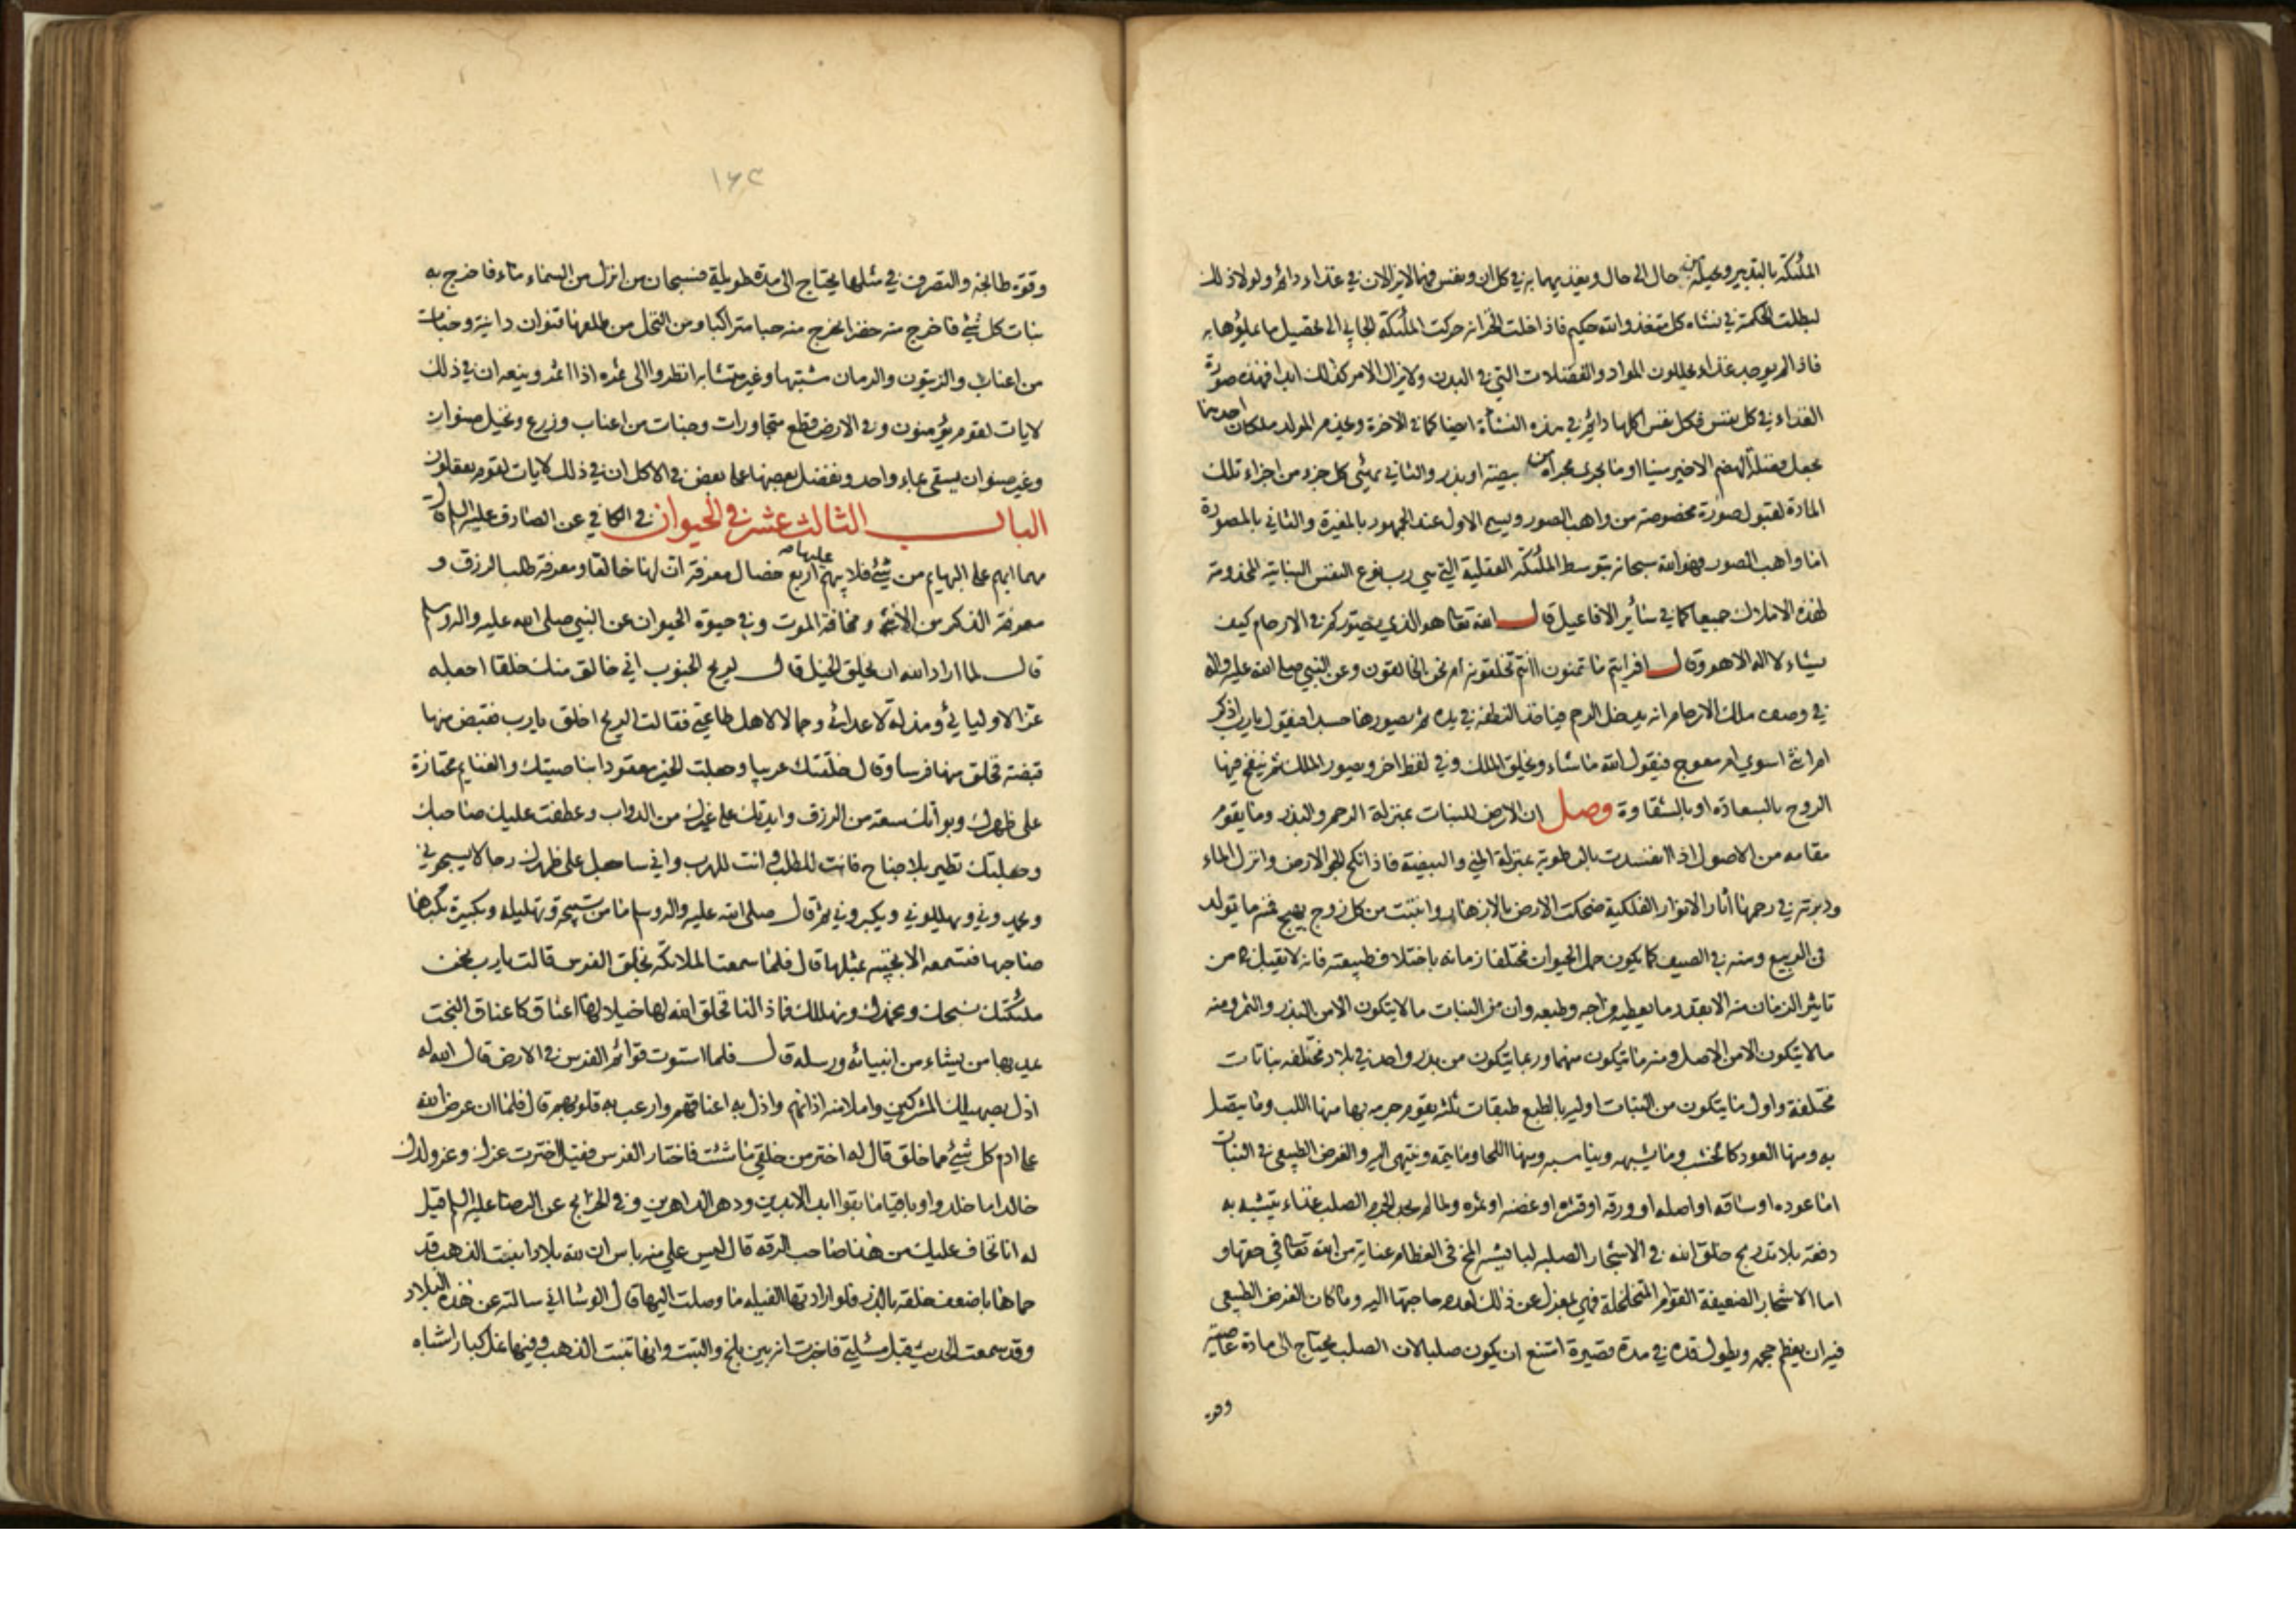 الملئكة بالتدبير ويحيله من حال الى حال ويغذيهما به في كل ان ونفس فهما لا يزالان في غذاء دائم ولولا ذلك
لبطلت الحكمة في نشاة كل متغذ والله حكيم فاذا خلت الخزانه حركت الملئكة الجابي الى تحصيل ما يملؤها به
فاذا لم يوجد غذاء يحللون المواد والفضلات التي في البدن ولا يزال الامر كذلك ابدا فهذه صورة
الغذاء في كل نفس فكل نفس اكلها دائم في هذه النشأة ايضا كما في الاخرة وخدم المولد ملكان احدهما
يجعل فضلة الهضم الاخير منيا او ما يجرى مجراه من بيضة او بذر والثاني يهيئ كل جزء من اجزاء تلك
المادة لقبول صورة مخصوصة من واهب الصور ويسمى الاول عند الجمهور بالمغيرة والثاني بالمصورة
اما واهب الصور فهو الله سبحانه بتوسط الملئكة العقلية التي هي رب نوع النفس النباتية المخدومة
لهذه الاملاك جميعا كما في سائر الافاعيل قال الله تعا هو الذي يصوركم في الارحام كيف
يشاء لا اله الا هو وقال افرايتم ما تمنون ءانتم تخلقونه ام نحن الخالقون وعن النبي صلى الله عليه واله
في وصف ملك الارحام انه يدخل الرحم فياخذ النطفة في يده ثم يصورها جسدا فيقول يا رب اذكر
ام انثى اسوي ام معوج فيقول الله ما شاء ويخلق الملك وفي لفظ اخر ويصور الملك ثم ينفخ فيها
الروح بالسعادة او بالشقاوة وصل ان الارض للنبات بمنزلة الرحم والبذر وما يقوم
مقامه من الاصول اذا انفسدت بالرطوبة بمنزلة المني والبيضة فاذا نكح الجو الارض وانزل الماء
ودبرته في رحمها اثار الانوار الفلكية ضحكت الارض بالازهار وانبتت من كل زوج بهيج فمنه ما تولد
في الربيع ومنه في الصيف كما يكون حمل الحيوان مختلفا زمانه باختلاف طبيعته فانه لا تقبل من
تاثير الزمان منه الا بقدر ما يعطيه مزاجه وطبعه وان من النبات ما لا يتكون الا من البذر والثمر ومنه
ما لا يتكون الا من الاصل ومنه ما يتكون منهما وربما يتكون من بذر واحد في بلاد مختلفه نباتات
مختلفة واول ما يتكون من النبات اوليه بالطبع طبقات ثلثه يقوم جرمه بها منها اللب وما يتصل
به ومنها العود كالخشب وما يشبهه ويناسبه ومنها اللحا وما يتمه وينتهى اليه والغرض الطبيعى في النبات
اما عوده او ساقه او اصله او ورقه او قشره او غصنه او ثمره ولما لم يجد الجرم الصلب غذاء يتشبه به
دفعة بلا تدريج خلق الله في الاشجار الصلبه لبا يشبه المخ في العظام عناية من الله تعا في حقها و
اما الاشجار الضعيفة القوام المتخلخلة فهي بمعزل عن ذلك لعدم حاجتها اليه وما كان الغرض الطبيعي
فيه ان يعظم حجمه ويطول قده في مدة قصيرة امتنع ان يكون صلبا لان الصلب يحتاج الى مادة عاصية
وقوة
١٦٣
وقوة طابخة والتصرف في مثلها يحتاج الى مدة طويلة فسبحان من انزل من السماء ماء فاخرج به
نبات كل شئ فاخرج منه خضرا يخرج منه حبا متراكبا ومن النخل من طلعها قنوان دانية وجنات
من اعناب والزيتون والرمان مشتبها وغير متشابه انظروا الى ثمره اذا اثمر وينعه ان في ذلك
لايات لقوم يؤمنون وفي الارض قطع متجاورات وجنات من اعناب وزرع ونخيل صنوان
وغير صنوان يسقى بماء واحد ونفضل بعضها على بعض في الاكل ان في ذلك لايات لقوم يعقلون
الباب الثالث عشر في الحيوان في الكافي عن الصادق عليه السلم قال
مهما ابهم على البهايم من شئ فلا يبهم عليها اربع خصال معرفة ان لها خالقا ومعرفة طلب الرزق و
معرفة الذكر من الانثى ومخافة الموت وفي حيوة الحيوان عن النبي صلى الله عليه واله وسلم
قال لما اراد الله ان يخلق الخيل قال لريح الجنوب اني خالق منك خلقا اجعله
عزا لاوليائي ومذلة لاعدائي وجمالا لاهل طاعتي فقالت الريح اخلق يا رب فقبض منها
قبضة فخلق منها فرسا وقال خلقتك عربيا وجعلت الخير معقودا بناصيتك والغنايم محتازة
على ظهرك وبواتك سعة من الرزق وايدتك على غيرك من الدواب وعطفت عليك صاحبك
وجعلتك تطير بلا جناح فانت للطلب وانت للهرب واني ساجعل على ظهرك رجالا يسبحوني
ويحمدوني ويهللوني ويكبروني ثم قال صلى الله عليه واله وسلم ما من تسبيحة وتهليلة وتكبيرة يكبرها
صاحبها فتسمعه الا تجيبه بمثلها قال فلما سمعت الملائكة بخلق الفرس قالت يا رب نحن
ملئكتك نسبحك ونحمدك ونهللك فماذا لنا فخلق الله لها خيلا لها اعناق كاعناق البخت
يمد بها من يشاء من انبيائه ورسله قال فلما استوت قوائم الفرس في الارض قال الله له
اذل بصهيلك المشركين واملا منه اذانهم واذل به اعناقهم وارعب به قلوبهم قال فلما ان عرض الله
على ادم كل شئ مما خلق قال له اختر من خلقي ما شئت فاختار الفرس فقيل له اخترت عزك وعز ولدك
خالدا ما خلدوا وباقيا ما بقوا ابد الابدين ودهر الداهرين وفي الخرايج عن الرضا عليه السلم قيل
له انا نخاف عليك من هذا صاحب الرقة قال ليس علي منه باس ان لله بلادا تنبت الذهب قد
حماها باضعف خلقه بالذر فلو ارادتها الفيله ما وصلت اليها قال الوشا اني سالته عن هذه البلاد
وقد سمعت الحديث قبل مسئلتي فاخبرت انه بين بلخ والتبت وانها تنبت الذهب وفيها نمل كبار اشباه